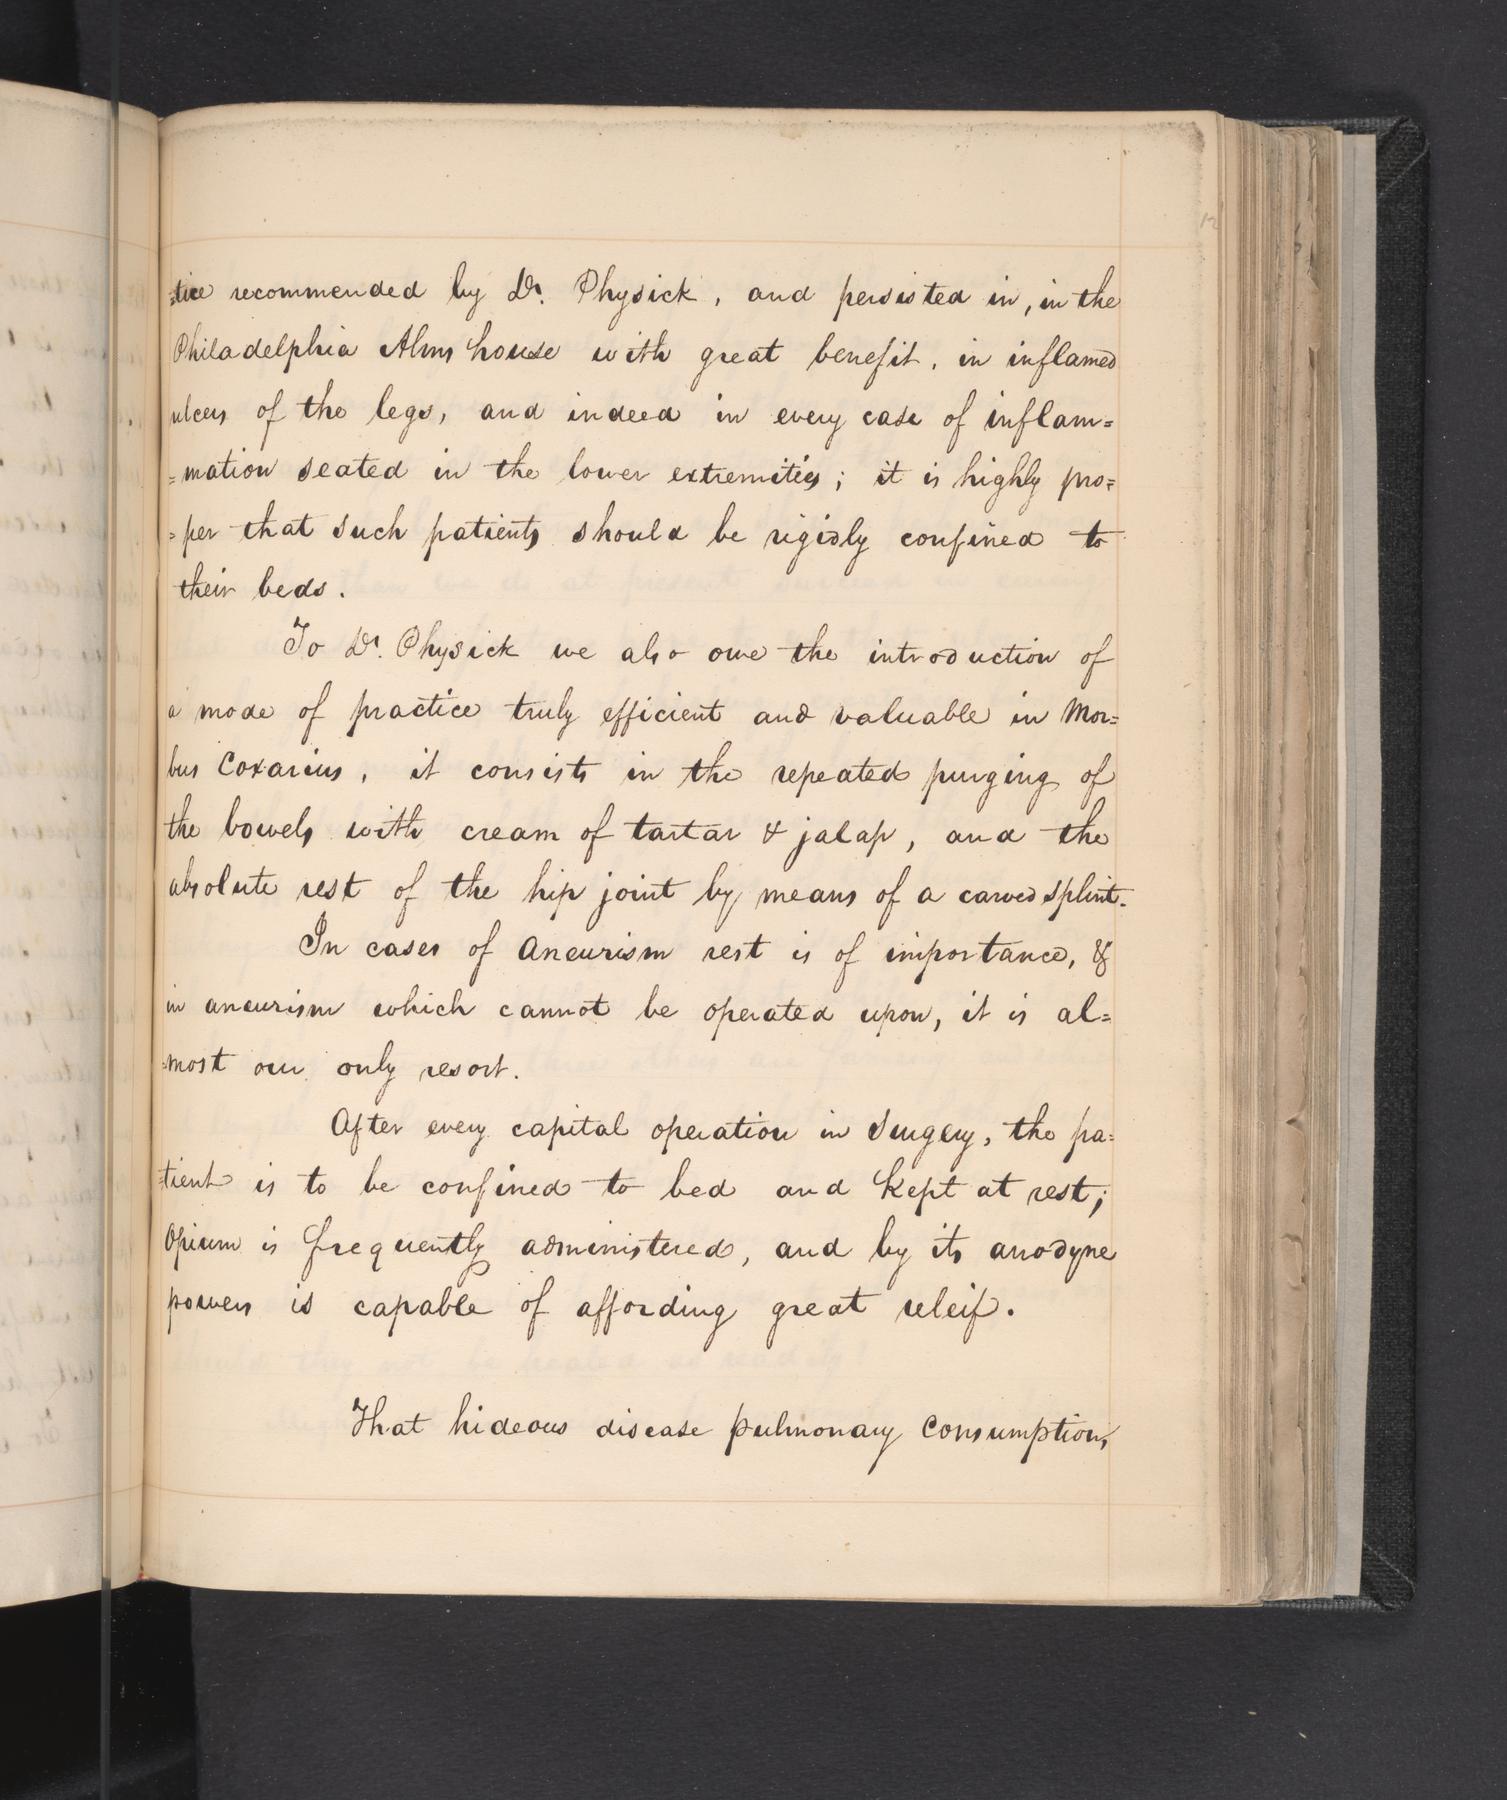 =tice recommended by Dr. Physick, and persisted in, in the
Philadelphia Alms house with great benefit, in inflamed
ulcers of the legs, and indeed in every case of inflam=
=mation seated in the lower extremities; it is highly pro=
=per that such patients should be rigidly confined to
their beds.
To Dr. Physick we also owe the introduction of
a mode of practice truly efficient and valuable in Mor=
bus Coxarius, it consists in the repeated purging of
the bowels with cream of tartar & jalap, and the
absolute rest of the hip joint by means of a carved splint.
In cases of Aneurism rest is of importance, &
in aneurism which cannot be operated upon, it is al=
=most our only resort.
After every capital operation in Surgery, the pa=
=tient is to be confined to bed and kept at rest;
Opium is frequently administered, and by its anodyne
powers is capable of affording great releif.
That hideous disease pulmonary Consumption,